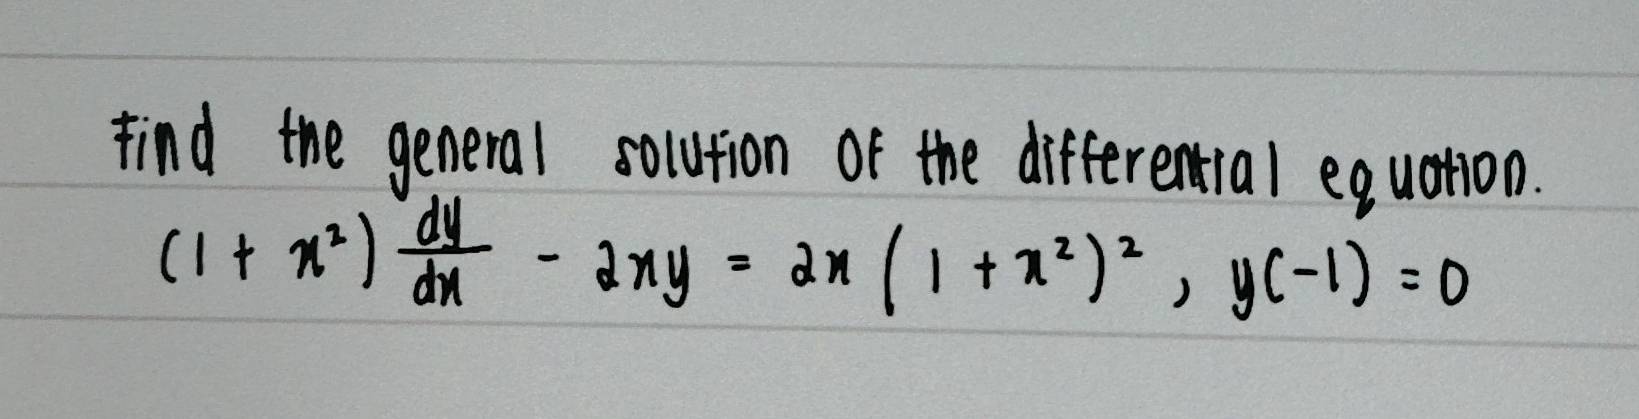 Find the general solution of the differential equation.
(1 + x²) dy/dx - 2xy = 2x (1 + x²)², y(-1) = 0